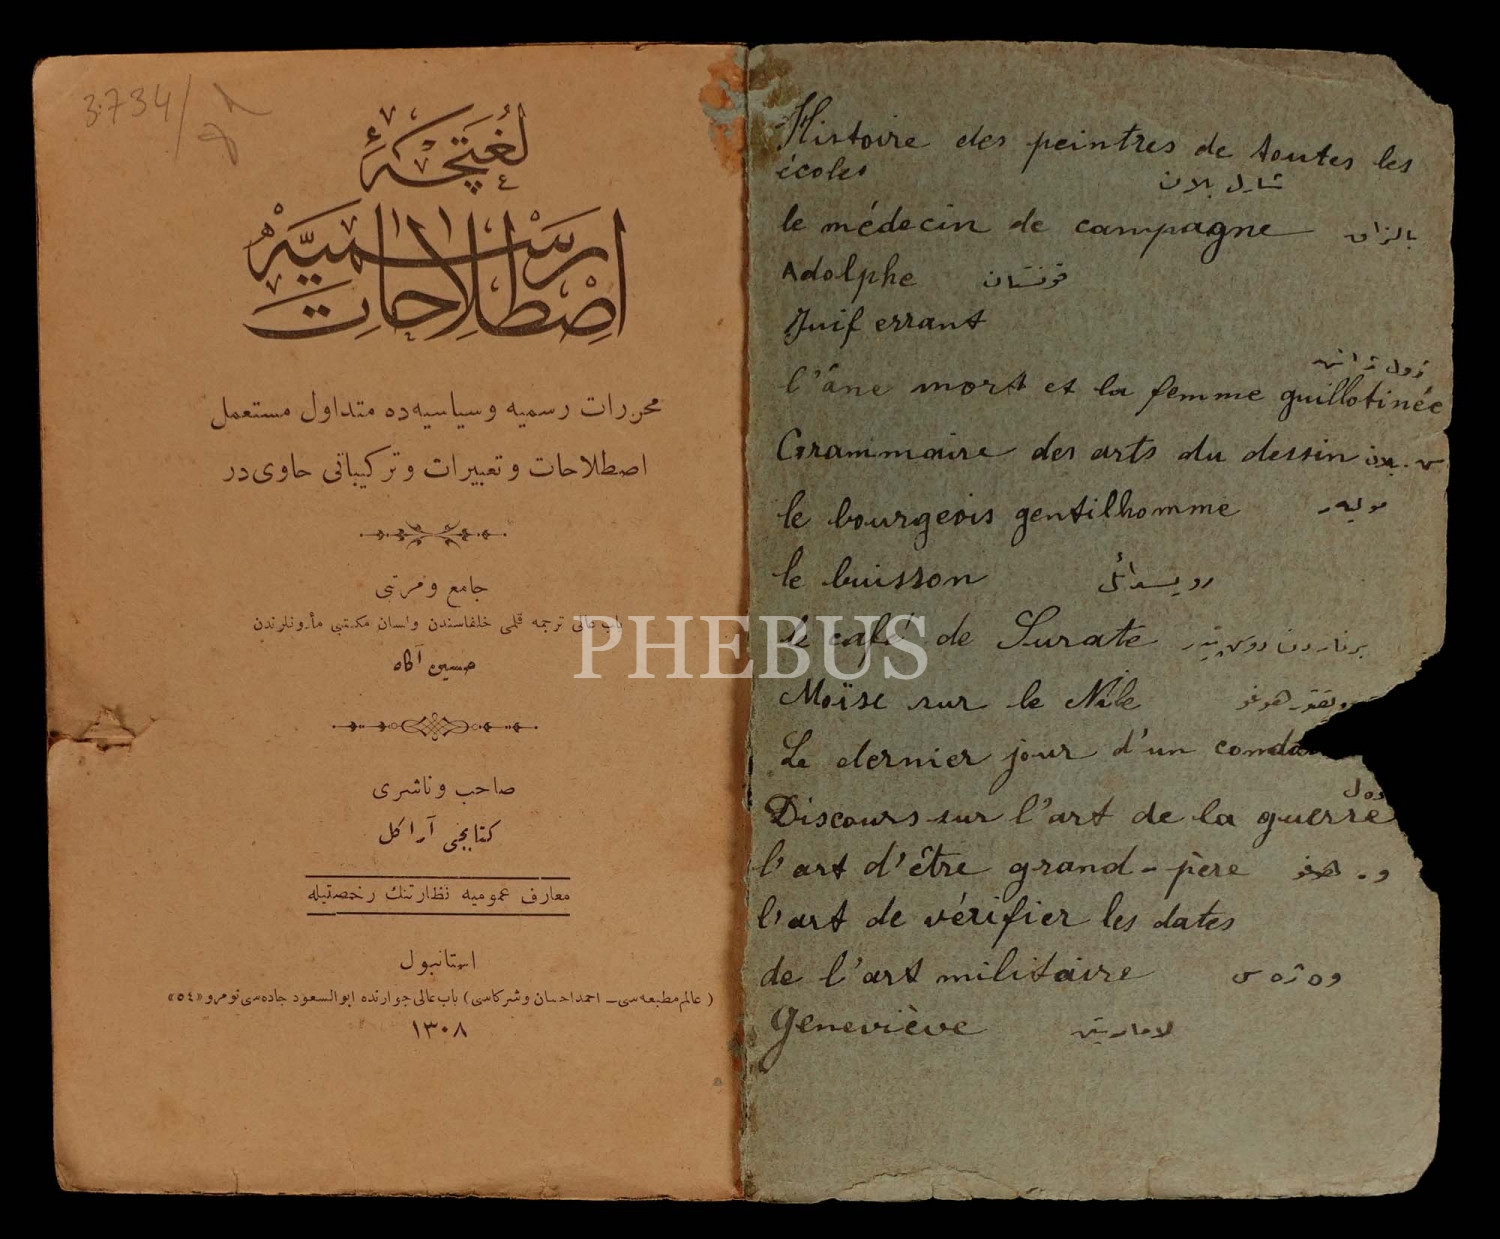 3734/
لغتچهٔ
اصطلاحات رسمیه
محررات رسمیه و سیاسیه ده متداول مستعمل
اصطلاحات و تعبیرات و ترکیباتی حاوی در
جامع و مرتبی
باب عالی ترجمه قلمی خلفاسندن و لسان مکتبی مأذونلرندن
حسین آگاه
صاحب و ناشری
کتابجی آراکل
معارف عمومیه نظارتنك رخصتیله
استانبول
( عالم مطبعه سی ـ احمد احسان و شرکاسی ) باب عالی جوارنده ابوالسعود جاده سی نومرو «٥٤»
١٣٠٨
Histoire des peintres de toutes les
écoles شارل بلان
le médecin de campagne بالزاق
Adolphe قونستان
Juif errant
ژول ژانن
l'âne mort et la femme guillotinée
Grammaire des arts du dessin ش. بلان
le bourgeois gentilhomme مولیه ر
le buisson
le café de Surate برناردن دوسن پیر
Moïse sur le Nile ویقتور هوغو
Le dernier jour d'un conda
Discours sur l'art de la guerre
l'art d'être grand-père و. هوغو
l'art de vérifier les dates
de l'art militaire
Geneviève لامارتین
PHEBUS